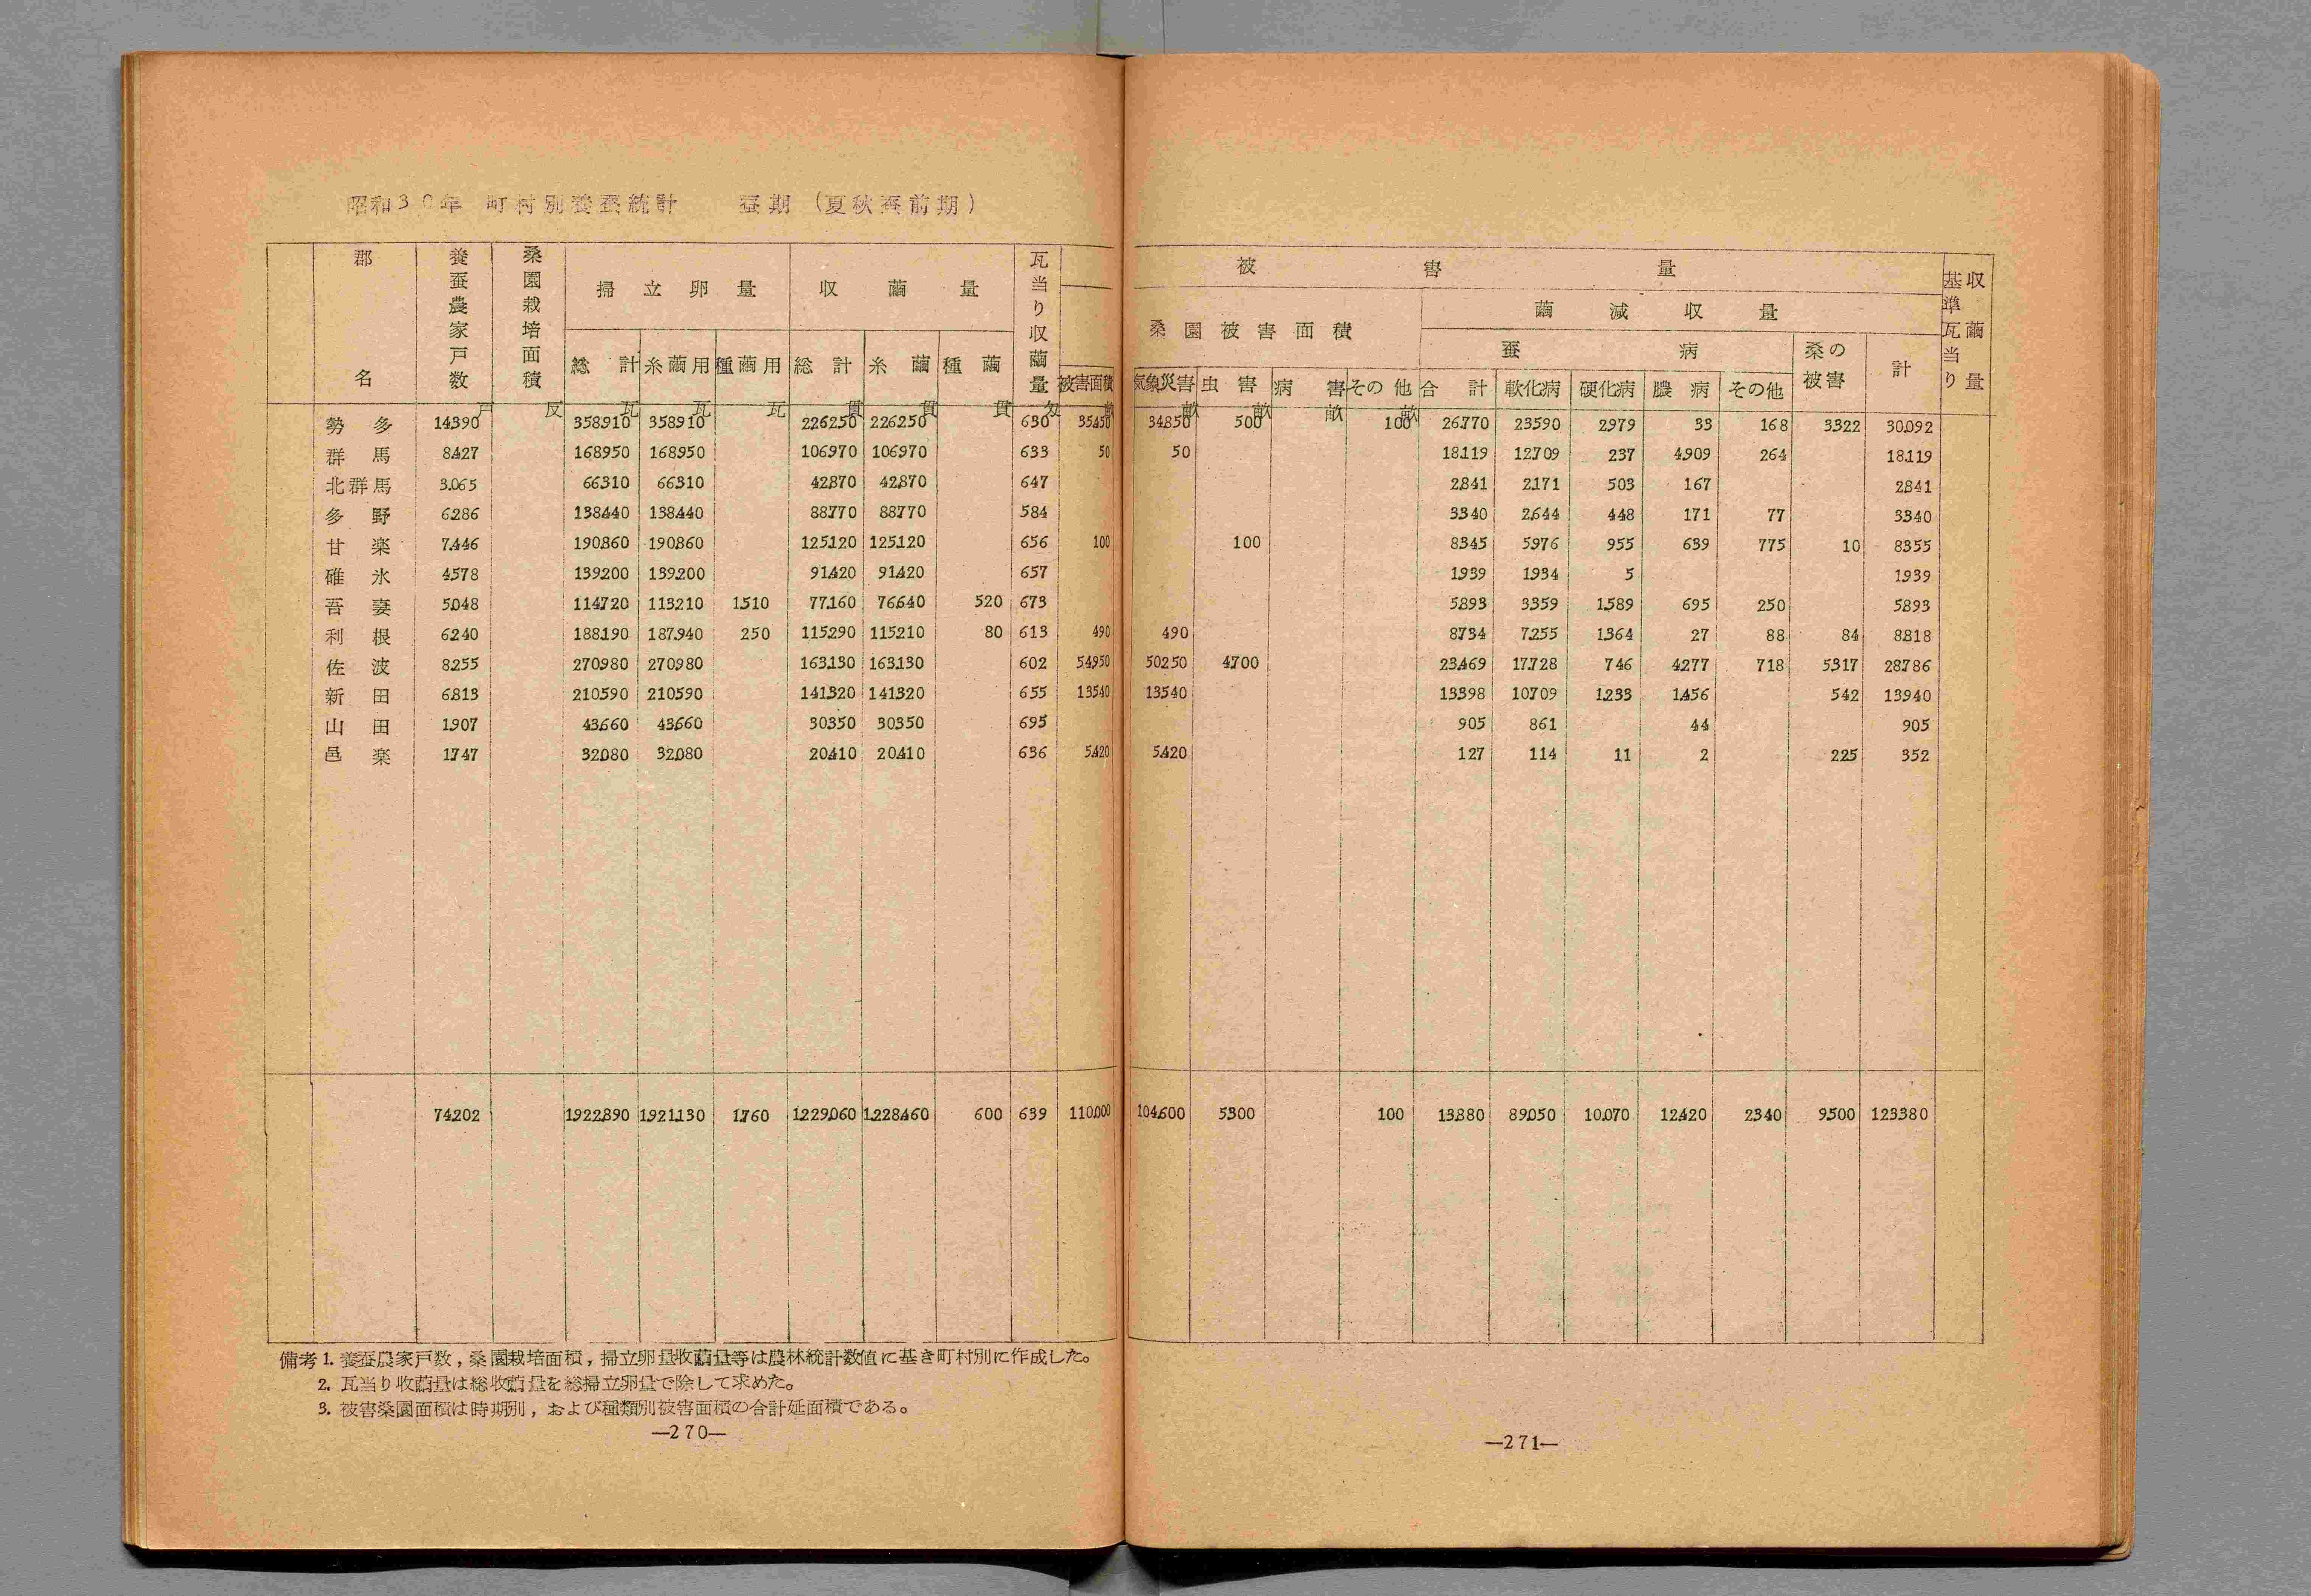 昭和30年 町村別養蚕統計 蚕期 (夏秋蚕前期)
郡名 養蚕農家戸数 桑園栽培面積 掃立卵量 収繭量 瓦当り収繭量
総計 糸繭用 種繭用 総計 糸繭 種繭 被害面積
戸 反 瓦 瓦 瓦 貫 貫 貫 匁 畝
勢多 14390 358910 358910 226250 226250 630 35450
群馬 8427 168950 168950 106970 106970 633 50
北群馬 3.065 66310 66310 42870 42870 647
多野 6286 138440 138440 88770 88770 584
甘楽 7.446 190860 190860 125120 125120 656 100
碓氷 4578 139200 139200 91420 91420 657
吾妻 5048 114720 113210 1510 77160 76640 520 673
利根 6240 188190 187940 250 115290 115210 80 613 490
佐波 8255 270980 270980 163130 163130 602 54950
新田 6813 210590 210590 141320 141320 655 13540
山田 1907 43660 43660 30350 30350 695
邑楽 1747 32080 32080 20410 20410 636 5420
74202 1922890 1921130 1760 1229060 1228460 600 639 110000
備考1. 養蚕農家戸数,桑園栽培面積,掃立卵量收繭量等は農林統計数値に基き町村別に作成した。
2. 瓦当り收繭量は総收繭量を総掃立卵量で除して求めた。
3. 被害桑園面積は時期別,および種類別被害面積の合計延面積である。
—270—
被害量 基準瓦当り収繭量
桑園被害面積 繭減収量
蚕病 桑の被害 計
気象災害 虫害 病害 その他 合計 軟化病 硬化病 膿病 その他
畝 畝 畝 畝
34850 500 100 26770 23590 2979 33 168 3322 30092
50 18119 12709 237 4909 264 18119
2841 2171 503 167 2841
3340 2644 448 171 77 3340
100 8345 5976 955 639 775 10 8355
1939 1934 5 1939
5893 3359 1589 695 250 5893
490 8734 7255 1364 27 88 84 8818
50250 4700 23469 17728 746 4277 718 5317 28786
13540 13398 10709 1233 1456 542 13940
905 861 44 905
5420 127 114 11 2 225 352
104600 5300 100 13880 89050 10070 12420 2340 9500 123380
—271—